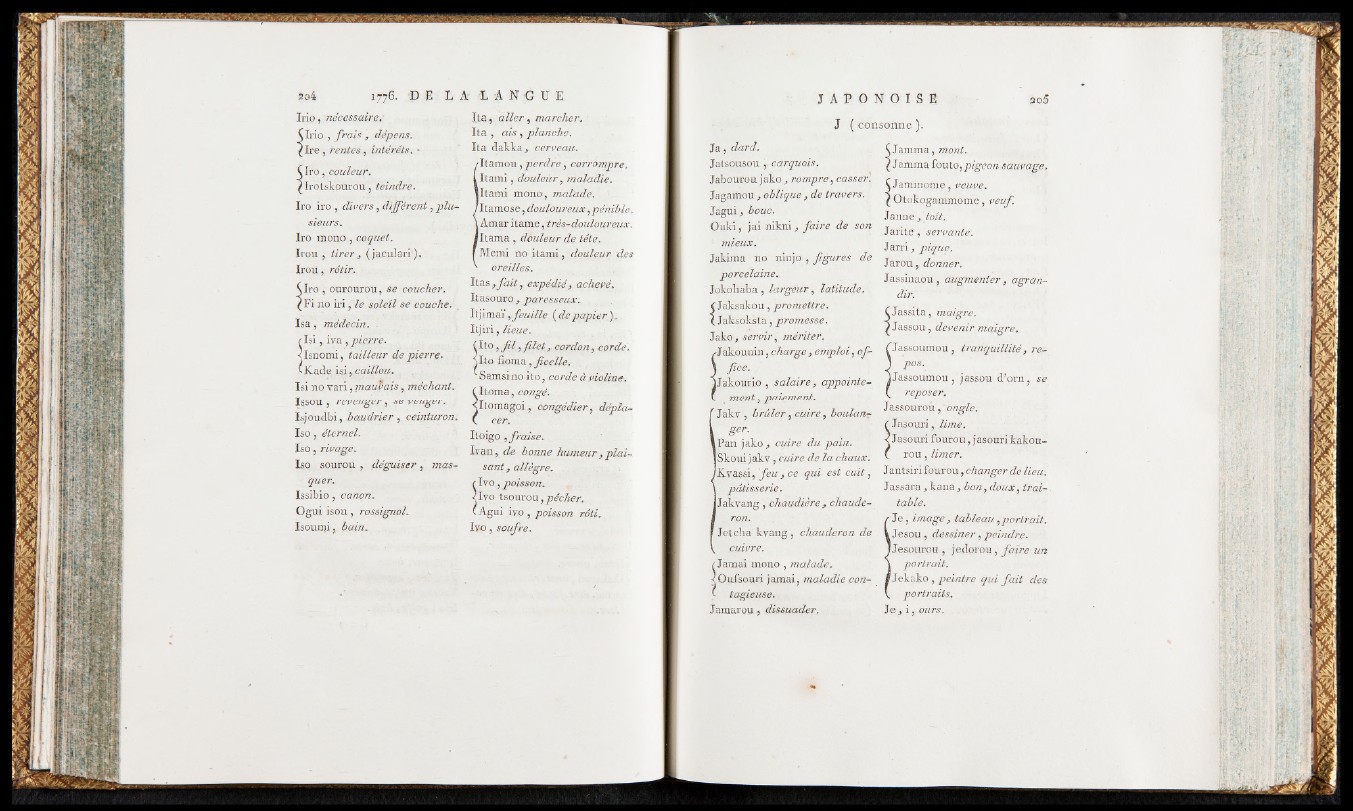 204 1776. DE LA LANGUE
Irio, nécessaire.
Irio, frais, dépens.
Ire, rentes, intérêts.
Iro, couleur.
Irotskourou, teindre.
Iro iro, divers, différent, plu-
sieurs.
Iro mono, coquet.
Irou, tirer, (jaculari).
Irou, rôtir.
Iro, ourourou, se coucher.
Fi no iri, le soleil se couche.
Isa, médecin.
Isi, iva, pierre.
Isnomi, tailleur de pierre.
Kade isi, caillou.
Isi no vari, mauvais, méchant.
Issou, revenger, se venger.
Isjoudbi, baudrier, ceinturon.
Iso, éternel.
Iso, rivage.
Iso sourou, déguiser, mas-
quer.
Issibio, canon.
Ogui isou, rossignol.
Isoumi, bain.
Ita, aller, marcher.
Ita, ais, planche.
Ita dakka, cerveau.
Itamou, perdre, corrompre.
Itami, douleur, maladie.
Itami mono, malade.
Itamose, douloureux, pénible.
Amar itame, très-douloureux.
Itama, douleur de tête.
Memi no itami, douleur des
oreilles.
Itas, fait, expédié, achevé.
Itasouro, paresseux.
Itjimaï, feuille (de papier).
Itjiri, lieue.
Ito, fil, filet, cordon, corde.
Ito fioma, ficelle.
Samsi no ito, corde à violine.
Itoma, congé.
Itomagoi, congédier, dépla-
cer.
Itoigo, fraise.
Ivan, de bonne humeur, plai-
sant, allègre.
Ivo, poisson.
Ivo tsourou, pêcher.
Agui ivo, poisson rôti.
Ivo, soufre.
JAPONOISE 205
J (consonne).
Ja, dard.
Jatsousou, carquois.
Jabourou jako, rompre, casser.
Jagamou, oblique, de travers.
Jagui, bouc.
Ouki, jai nikni, faire de son
mieux.
Jakima no ninjo, figures de
porcelaine.
Jokohaba, largeur, latitude.
Jaksakou, promettre.
Jaksoksta, promesse.
Jako, servir, mériter.
Jakounin, charge, emploi, of-
fice.
Jakourio, salaire, appointe-
ment, paiement.
Jakv, brûler, cuire, boulan-
ger.
Pan jako, cuire du pain.
Skoui jakv, cuire de la chaux.
Kvassi, feu, ce qui est cuit,
pâtisserie.
Jakvang, chaudière, chaude-
ron.
Jetcha kvang, chauderon de
cuivre.
Jamai mono, malade.
Oufsouri jamai, maladie con-
tagieuse.
Jamarou, dissuader.
Jamma, mont.
Jamma fouto, pigeon sauvage.
Jammome, veuve.
Otokogammome, veuf.
Janne, toit.
Jarite, servante.
Jarri, pique.
Jarou, donner.
Jassinaou, augmenter, agran-
dir.
Jassita, maigre.
Jassou, devenir maigre.
Jassoumou, tranquillité, re-
pos.
Jassoumou, jassou d'orn, se
reposer.
Jassourou, ongle.
Jasouri, lime.
Jasouri fourou, jasouri kakou-
rou, limer.
Jantsiri fourou, changer de lieu.
Jassara, kana, bon, doux, trai-
table.
Je, image, tableau, portrait.
Jesou, dessiner, peindre.
Jesourou, jedorou, faire un
portrait.
Jekako, peintre qui fait des
portraits.
Je, i, ours.